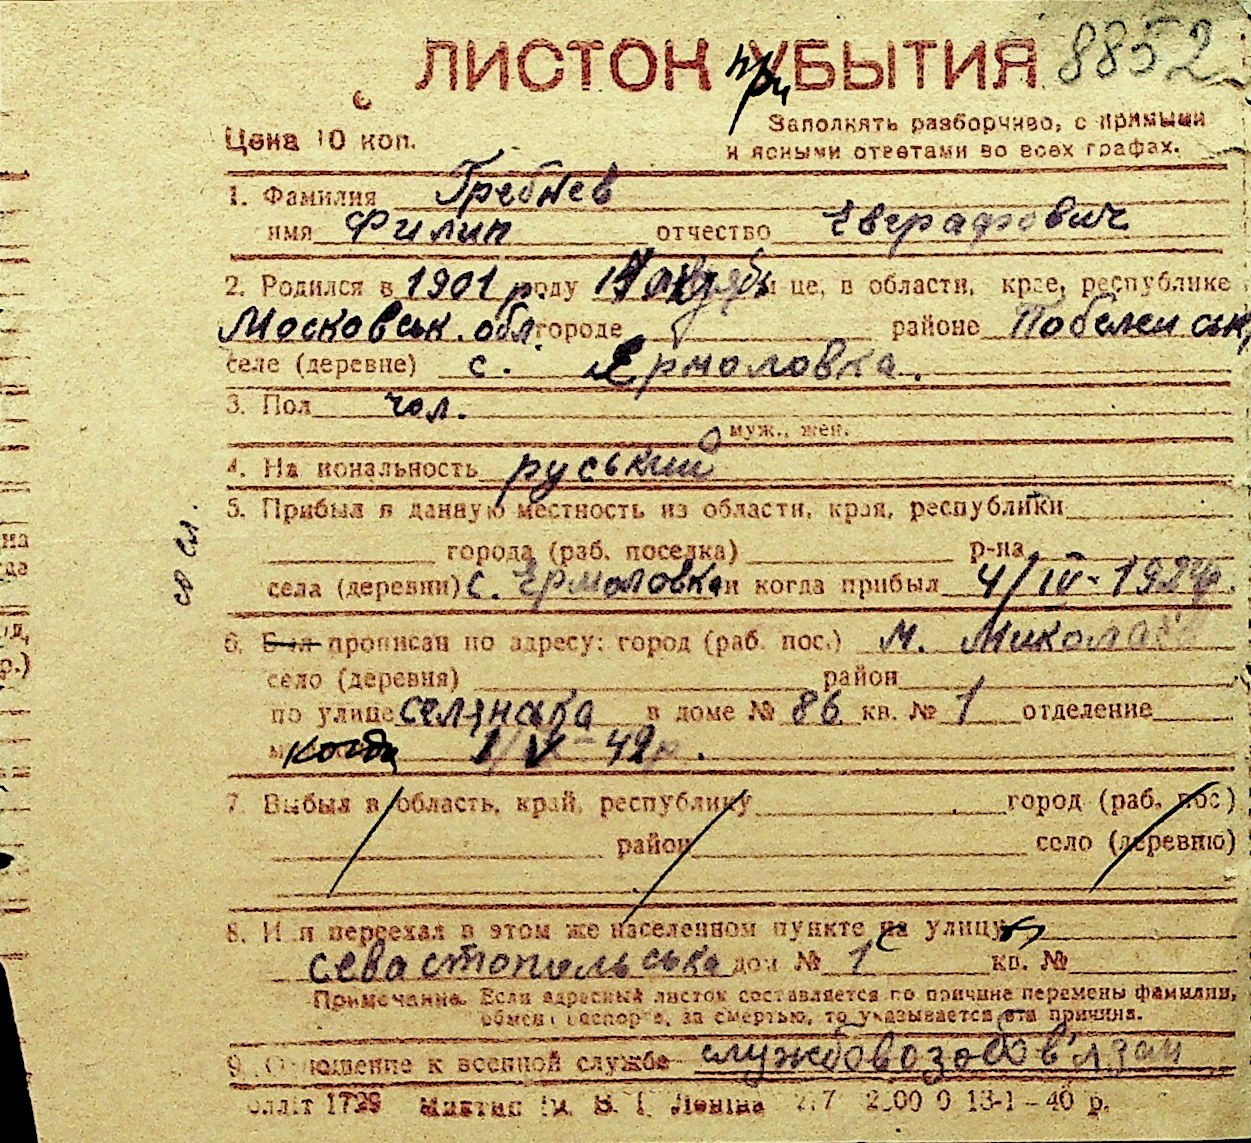 ЛИСТОК при УБЫТИЯ 8852
Цена 10 коп.
Заполнять разборчиво, с прямыми
и ясными ответами во всех графах.
1. Фамилия Гребнев
имя Филип отчество Евграфович
2. Родился в 1901 р. году 14 месяце, в области, крае, республике
Московськ. обл. городе районе
селе (деревне) с. Ярмоловка.
3. Пол чол.
муж., жен.
4. Национальность руський
5. Прибыл в данную местность из области, края, республики
города (раб. поселка) р-на
села (деревни) с. Ермоловка и когда прибыл 4/IV-1924р.
6. Был прописан по адресу: город (раб. пос.) м. Миколаїв
село (деревня) район
по улице селянська в доме № 86 кв. № 1 отделение
когда 1/V-42р.
7. Выбыл в область, край, республику город (раб. пос)
район село (деревню)
8. И и переехал в этом же населенном пункте на улицу
севастопольська дом № 1 кв. №
Примечание. Если адресный листок составляется по причине перемены фамилии,
обмена паспорта, за смертью, то указывается эта причина.
9. Отношение к военной службе службовозобов'язан
1729 В. І. Леніна 13-1-40 р.